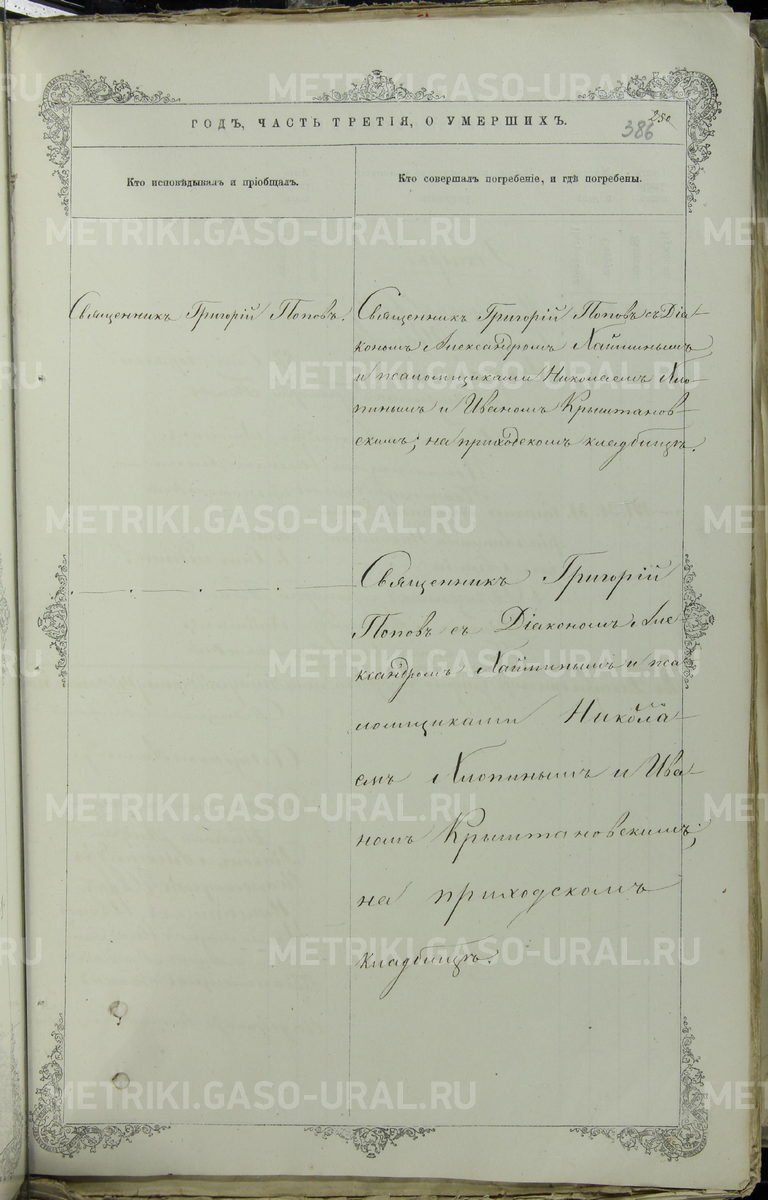 ГОДЪ, ЧАСТЬ ТРЕТІЯ, О УМЕРШИХЪ.
250
386
Кто исповѣдывалъ и пріобщалъ.
Кто совершалъ погребеніе, и гдѣ погребены.
Священникъ Григорій Поповъ.
Священникъ Григорій Поповъ съ Діа-
кономъ Александромъ
и псаломщиками Николаемъ Хло-
пинымъ и Иваномъ Крыштанов-
скимъ; на приходскомъ кладбищѣ.
Священникъ Григорій
Поповъ съ Діакономъ Але-
ксандромъ и пса
ломщиками Никола
емъ Хлопинымъ и Ива-
номъ Крыштановскимъ;
на приходскомъ
кладбищѣ.
METRIKI.GASO-URAL.RU